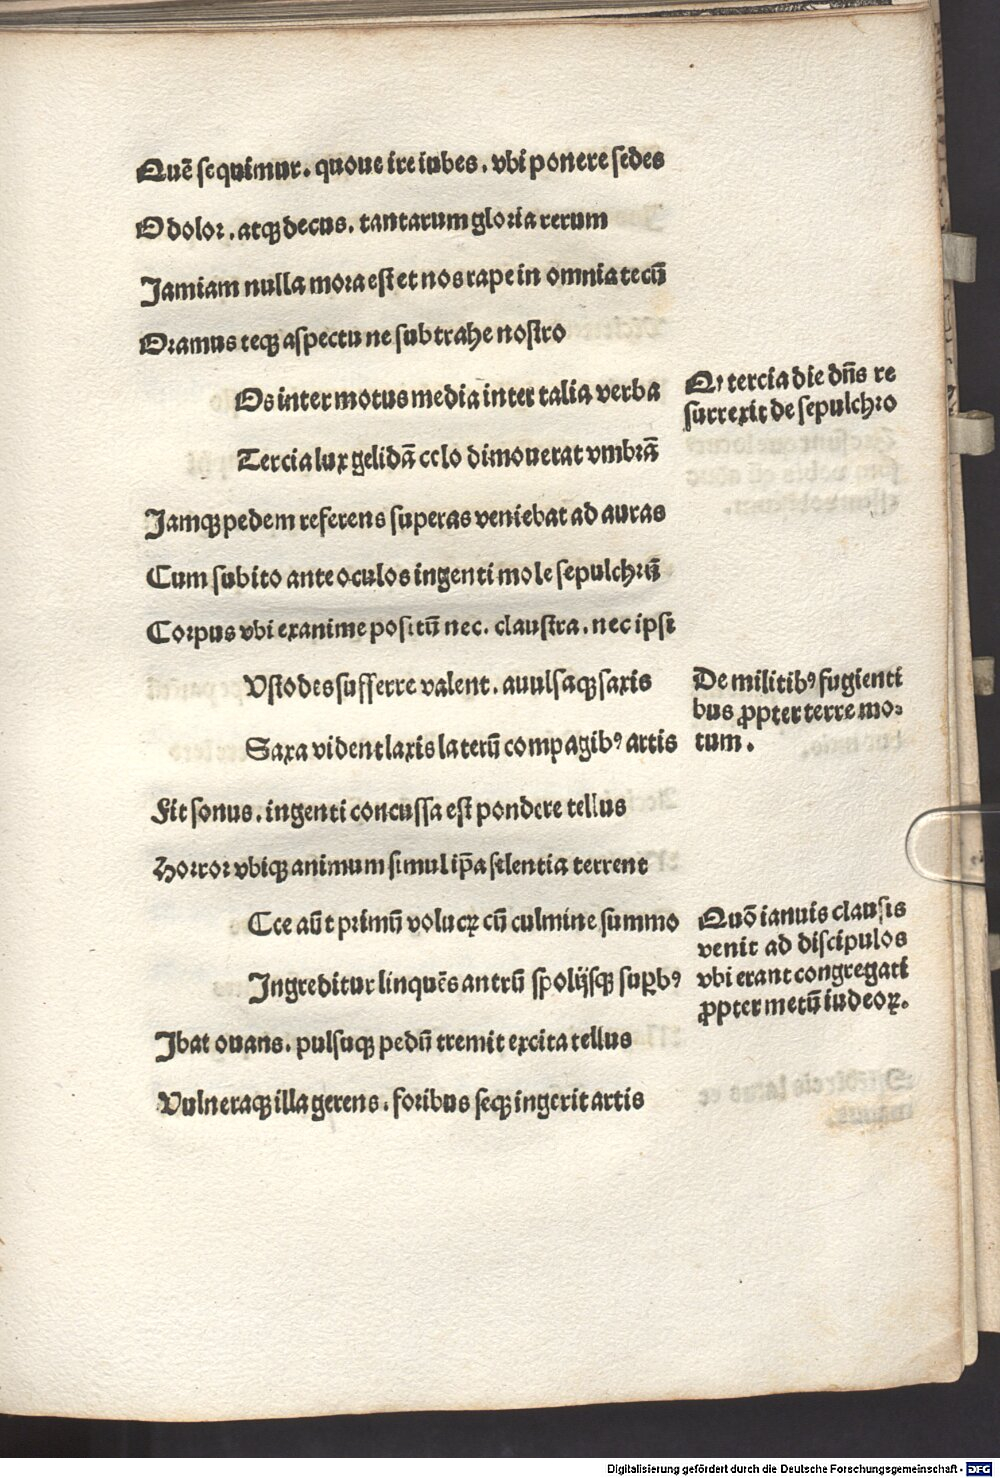 Quē sequimur. quoue ire iubes. vbi ponere sedes
O dolor. atqꝫ decus. tantarum gloria rerum
Jamiam nulla mora est et nos rape in omnia tecū
Oramus teqꝫ aspectu ne subtrahe nostro
Os inter motus media inter talia verba
Tercia lux gelidā celo dimouerat vmbrā
Q, tercia die dn̄s re
surrexit de sepulchro
Jamqꝫ pedem referens superas veniebat ad auras
Cum subito ante oculos ingenti mole sepulchrū
Corpus vbi exanime positū nec. claustra. nec ipsi
Vstodes sufferre valent. auulsaqꝫ saxis
Saxa vident laxis laterū compagibꝰ artis
De militibꝰ fugienti
bus ꝓpter terre mo:
tum.
Fit sonus. ingenti concussa est pondere tellus
Horror vbiqꝫ animum simul ip̄a silentia terrent
Cce aūt primū volucrꝝ cū culmine summo
Ingreditur linquēs antrū spolijsqꝫ suꝑbꝰ
Quō ianuis clausis
venit ad discipulos
vbi erant congregati
ꝓpter metū iudeoꝝ.
Jbat ouans. pulsuqꝫ pedū tremit excita tellus
Vulneraqꝫ illa gerens. foribus seqꝫ ingerit artis
Digitalisierung gefördert durch die Deutsche Forschungsgemeinschaft - DFG